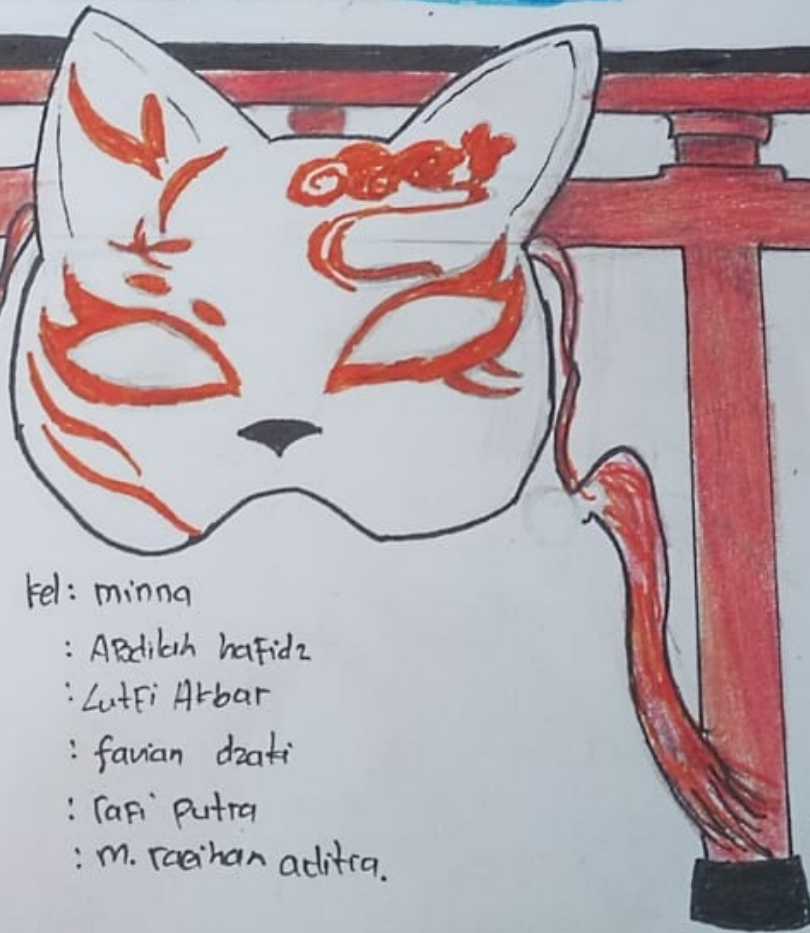 kel: minna
: Abdilah hafidz
: Lutfi Akbar
: favian dzaki
: rafi putra
: m. raeihan aditra.